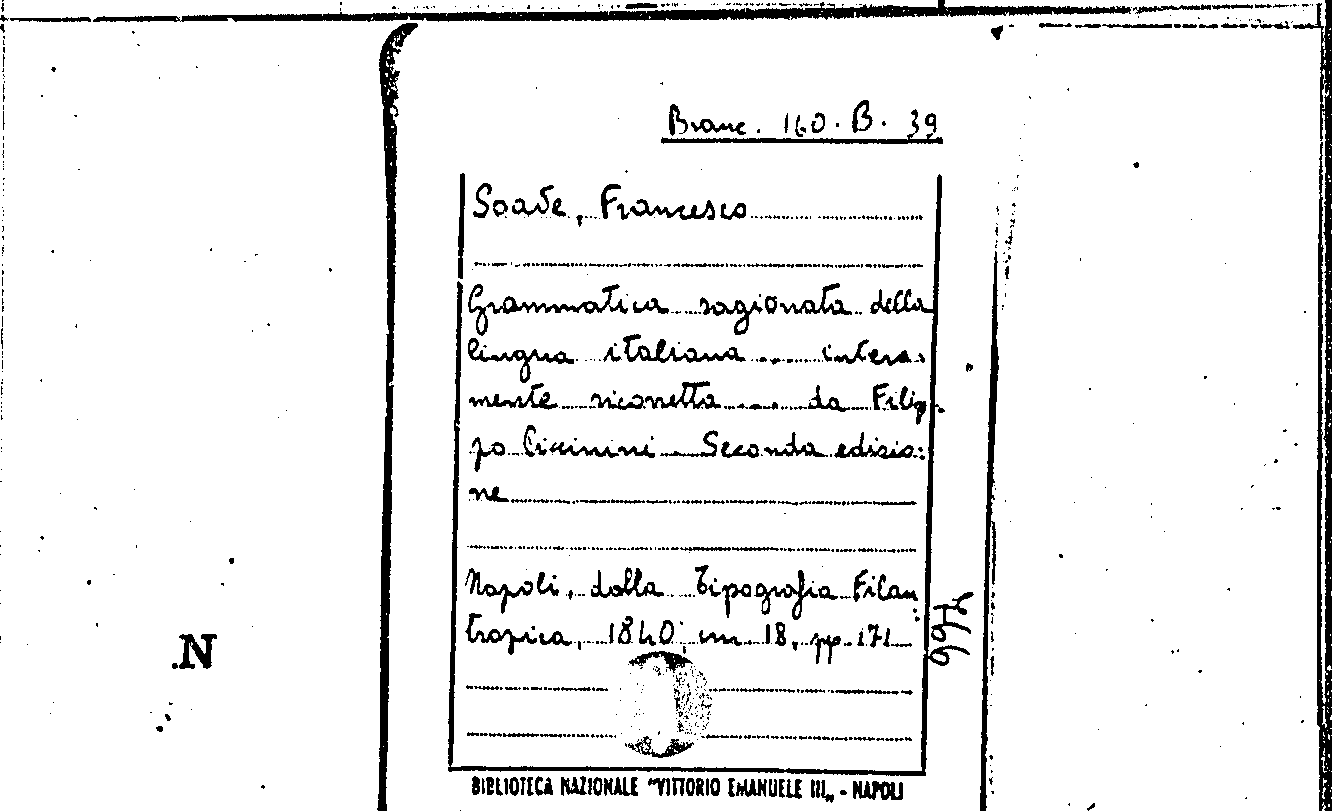 Branc. 160. B. 39
Soave, Francesco
Grammatica ragionata della
lingua italiana ... intera-
mente ricorretta ... da Filip-
po Ciccinini. Seconda edizio:
ne
Napoli, dalla Tipografia Filan:
tropica, 1840, in 18, pp. 171
.N
BIBLIOTECA NAZIONALE "VITTORIO EMANUELE III„ - NAPOLI